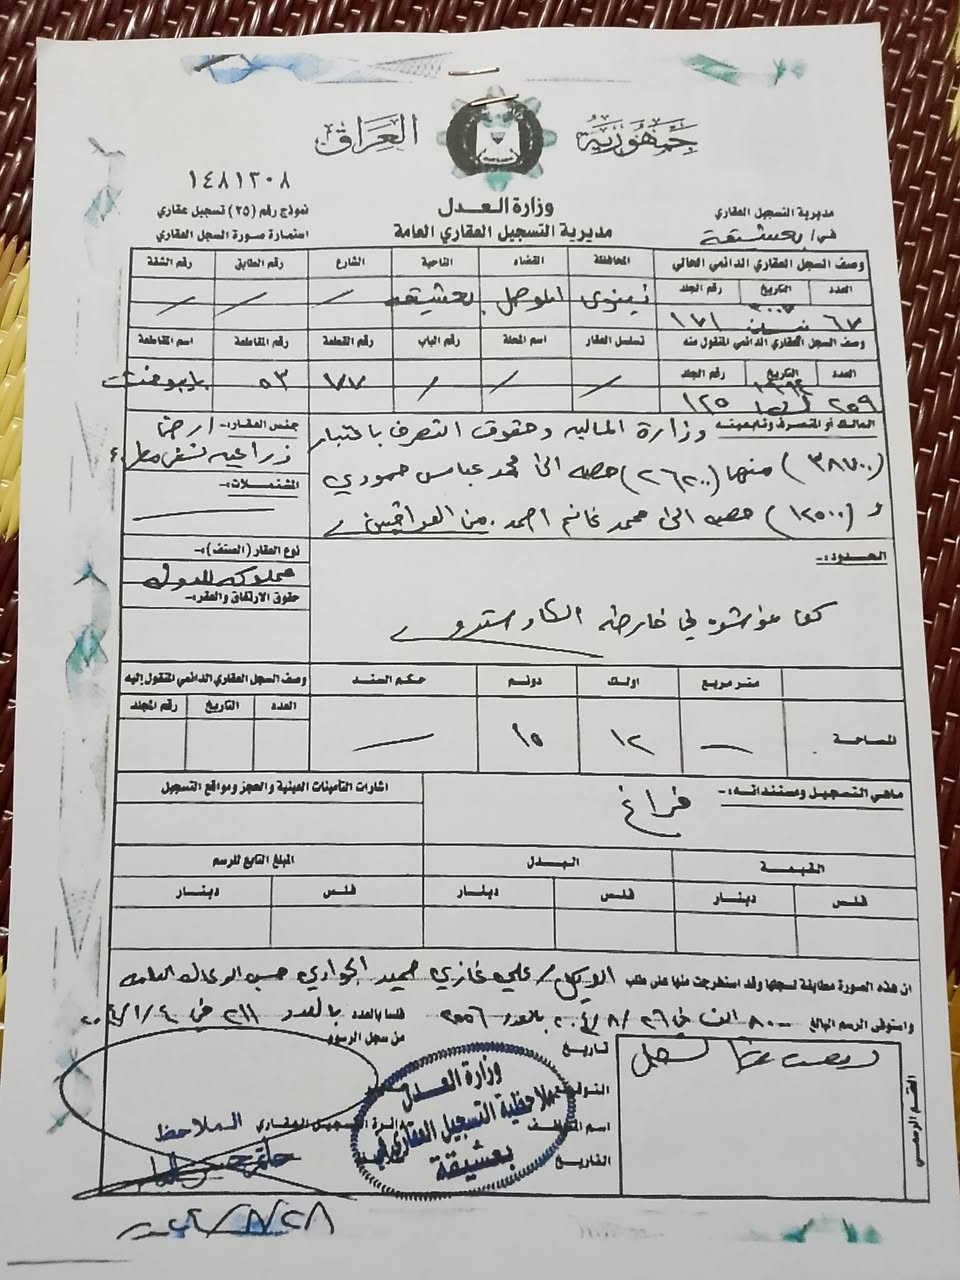 جمهورية العراق
١٤٨١٢٠٨
وزارة العدل
مديرية التسجيل العقاري العامة
مديرية التسجيل العقاري
في/ بعشيقة
نموذج رقم (٢٥) تسجيل عقاري
استمارة صورة السجل العقاري
وصف السجل العقاري الدائمي الحالي
المحافظة القضاء الناحية الشارع رقم الطابق رقم الشقة
العدد التاريخ رقم الجلد
نينوى الموصل بعشيقة / / /
٦٧ ١٧١
وصف السجل العقاري الدائمي المنقول منه
تسلسل العقار اسم المحلة رقم الباب رقم القطعة رقم المقاطعة اسم المقاطعة
العدد التاريخ رقم الجلد
/ / / ١٧٧ ٥٣
٢٥٩ ١٢٥
المالك أو المتصرف وتابعيته:- وزارة المالية وحقوق التصرف باعتبار
(٣٨٧٠٠) منها (٢٦٢٠٠) حصه الى محمد عباس حمودي
و (١٢٥٠٠) حصه الى محمد غانم احمد. من العراقيين
جنس العقار:- ارض
زراعية
المشتملات:-
نوع العقار (الصنف):-
مملوكة للدولة
حقوق الارتفاق والعقر:-
الحدود:-
كما مؤشره في خارطة الكادسترو
متر مربع اولك دونم حكم السند وصف السجل العقاري الدائمي المنقول إليه
العدد التاريخ رقم المجلد
المساحة ١٢ ١٥
ماهي التسجيل ومستنداته:- فراغ
اشارات التأمينات العينية والحجز ومواقع التسجيل
القيمة البدل المبلغ التابع للرسم
فلس دينار فلس دينار فلس دينار
ان هذه الصورة مطابقة لسجلها وقد استخرجت منها على طلب الوكيل / علي غازي حميد الجواري حسب الوكالة العامة
واستوفى الرسم البالغ في ٢٦/٨/ بالعدد فلسا بالعدد بالعدد ٢١١ في
من سجل الرسوم
لتاريخ
التوقيع
اسم الموظف
التاريخ
الختم الرسمي
وزارة العدل
ملاحظية التسجيل العقاري في
بعشيقة
الملاحظ
دائرة التسجيل العقاري
٢٨/٨/